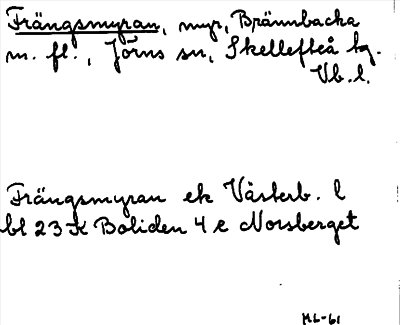 Frängsmyran, myr, Brännbacka
m. fl., Jörns sn, Skellefteå tg.
Vb. l.
Frängsmyran ek Västerb. l
bl 23 K Boliden 4 e Norsberget
ML-61